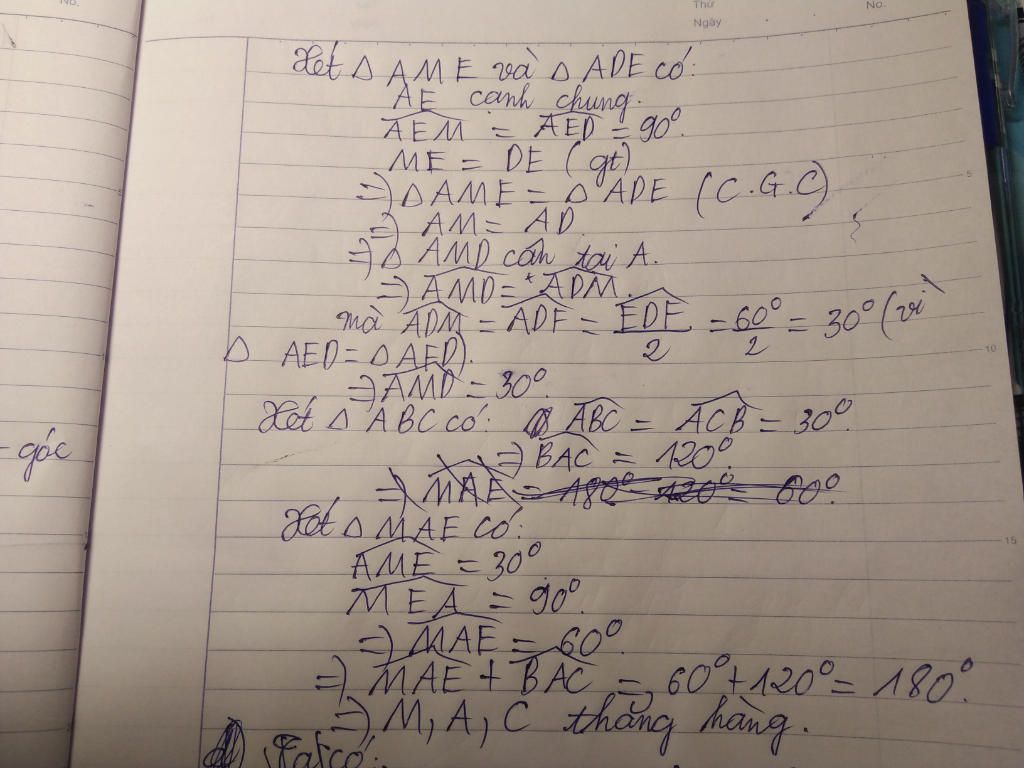 No.
Thứ
Ngày
No.
Xét △ AME và △ ADE có:
AE cạnh chung.
AEM = AED = 90°.
ME = DE (gt)
=> △ AME = △ ADE (C.G.C)
=> AM = AD
=> △ AMD cân tại A.
=> AMD = ADM.
mà ADM = ADF = EDF/2 = 60°/2 = 30° (vì
△ AED = △ AED).
=> AMD = 30°.
Xét △ ABC có: ABC = ACB = 30°.
=> BAC = 120°.
=> MAE = 180° - 120° = 60°.
Xét △ MAE có:
AME = 30°
MEA = 90°.
=> MAE = 60°.
=> MAE + BAC = 60° + 120° = 180°.
=> M, A, C thẳng hàng.
d) Ta có:
- góc
5
10
15